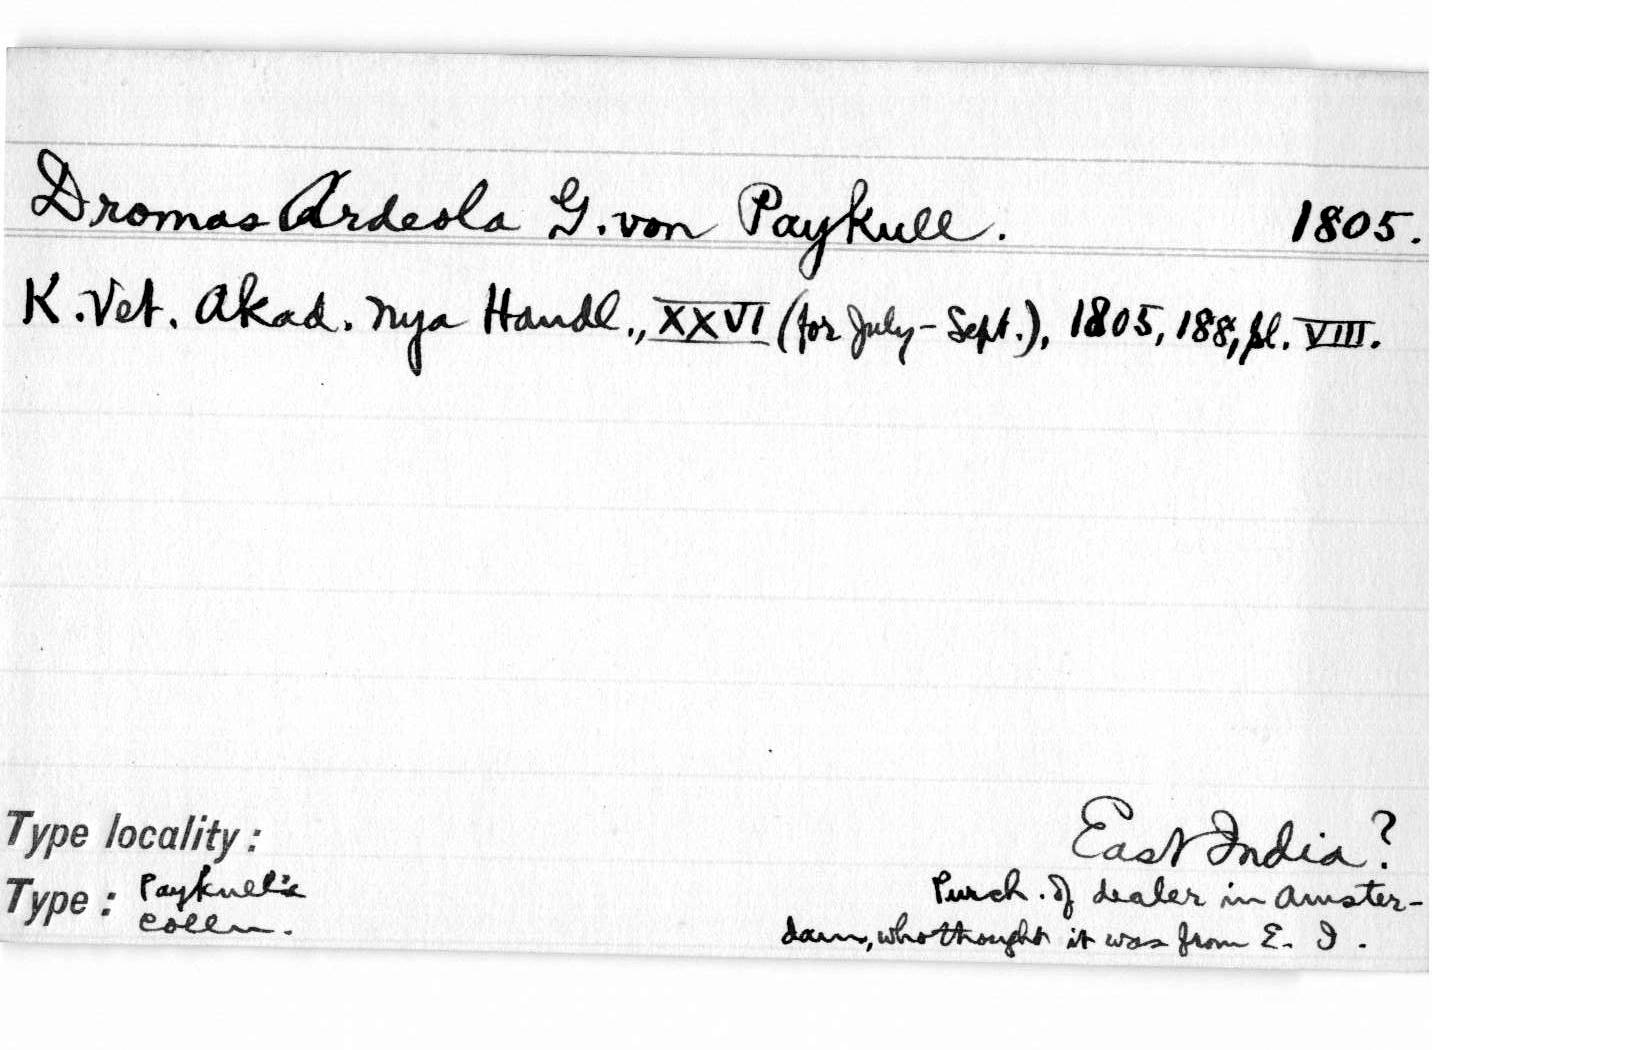 Dromas Ardeola G. von Paykull. 1805.
K. Vet. Akad. Nya Handl., XXVI (for July-Sept.), 1805, 188, pl. VIII.
Type locality: East India?
Type: Paykull's Purch. of dealer in Amster-
colln. dam, who thought it was from E. I.